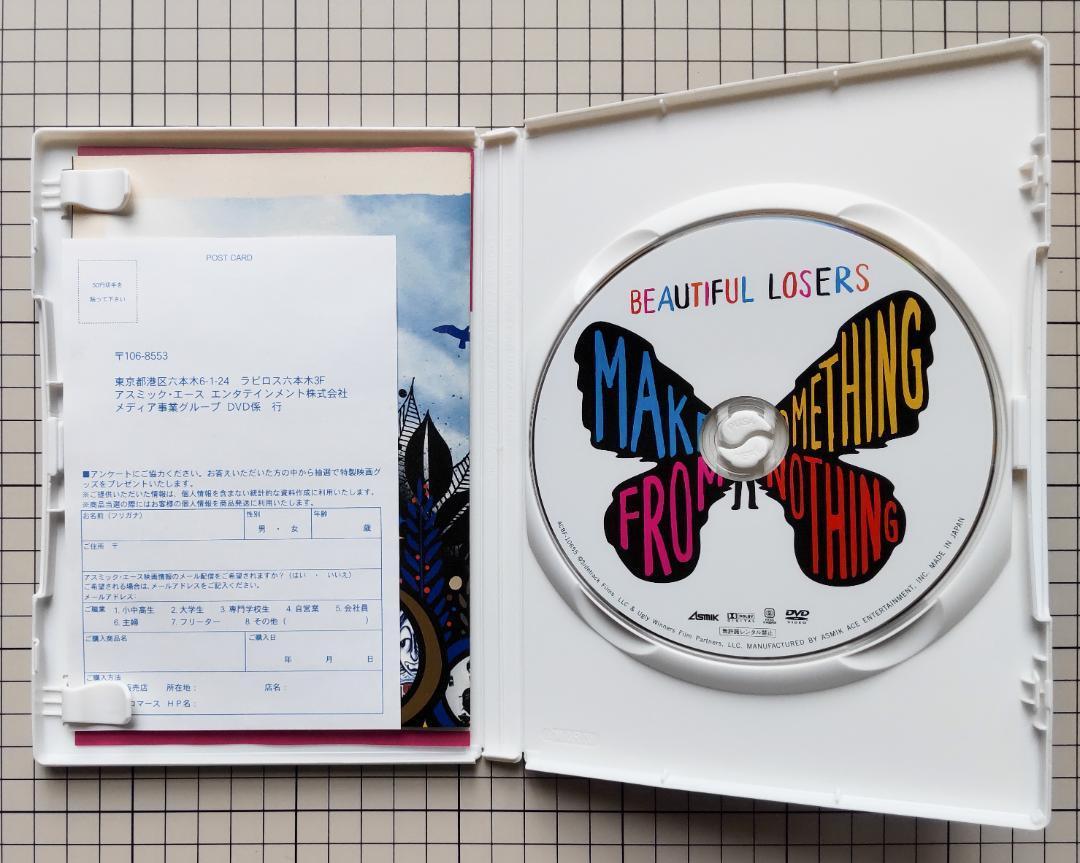 POST CARD
50円切手を
貼って下さい
〒106-8553
東京都港区六本木6-1-24 ラピロス六本木3F
アスミック・エース エンタテインメント株式会社
メディア事業グループ DVD係 行
■アンケートにご協力ください。お答えいただいた方の中から抽選で特製映画グ
ッズをプレゼントいたします。
※ご提供いただいた情報は、個人情報を含まない統計的な資料作成に利用いたします。
※商品当選の際にはお客様の個人情報を商品発送に利用いたします。
お名前(フリガナ) 性別 年齢
男 ・ 女 歳
ご住所 〒
アスミック・エース映画情報のメール配信をご希望されますか?(はい ・ いいえ)
ご希望される場合は、メールアドレスをご記入ください。
メールアドレス:
ご職業 1. 小中高生 2. 大学生 3. 専門学校生 4. 自営業 5. 会社員
6. 主婦 7. フリーター 8. その他( )
ご購入商品名 ご購入日
年 月 日
ご購入方法
販売店 所在地: 店名:
コマース HP名:
BEAUTIFUL LOSERS
MAKE SOMETHING
FROM NOTHING
ASMIK
DOLBY DIGITAL
DVD VIDEO
無許諾レンタル禁止
ACBF-10655 ©Sidetrack Films, LLC & Ugly Winners Film Partners, LLC. MANUFACTURED BY ASMIK ACE ENTERTAINMENT, INC. MADE IN JAPAN